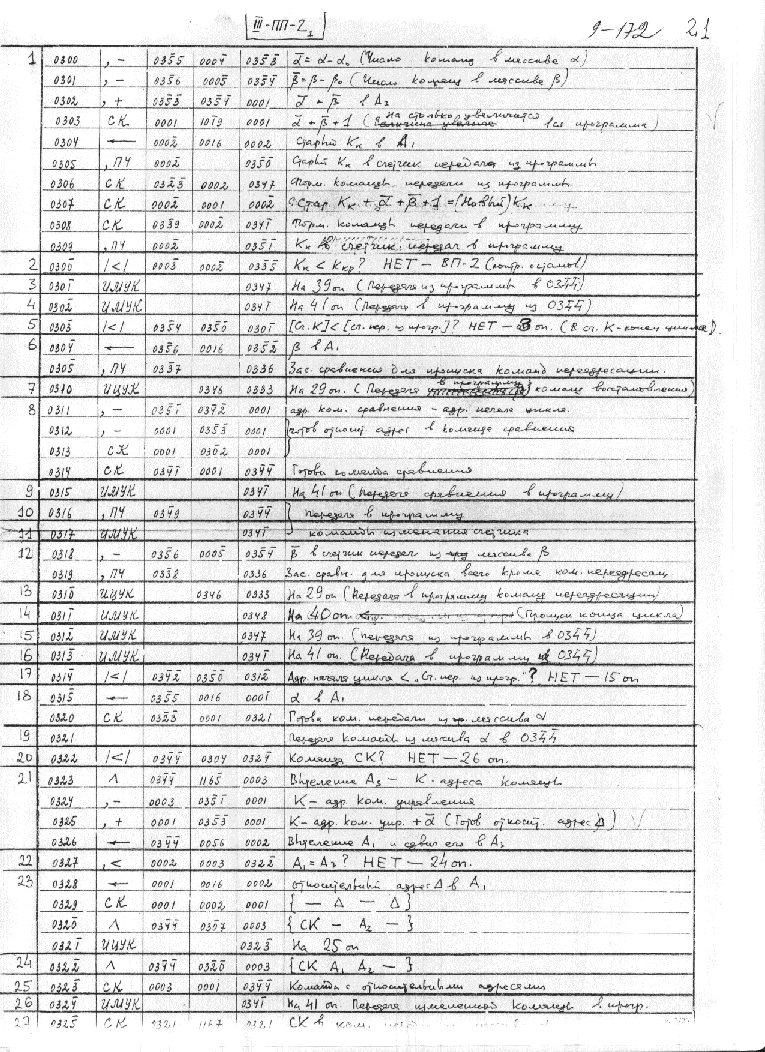 III-ПП-2₁ 9-172 21
1 0300 , – 03̅5̅5 0004̅ 035̅3̅ α̅ = α - α₀ (Число команд в массиве α)
0301 , – 035̅6 0005̅ 035̅4̅ β̅ = β - β₀ (Число команд в массиве β)
0302 , + 035̅3̅ 035̅4̅ 0001 α̅ + β̅ в А₃
0303 СК 0001 1019 0001 α̅ + β̅ + 1 (На столько увеличится вся программа)
0304 ← 0002̅ 0016 0002 Старый Кк в А₁
0305 , ПЧ 0002̅ 035̅0̅ Старый Кк в счетчик передачи из программы
0306 СК 032̅3̅ 0002 0347 Форм. команды передачи из программы
0307 СК 0002̅ 0001 0002̅ Стар. Кк + α̅ + β̅ + 1 = (Новый) Кк
0308 СК 0339 0002 034̅1̅ Форм. команды передачи в программу
0309 , ПЧ 0002̅ 035̅1̅ Кк в счетчик передач в программу
2 030̅0̅ |<| 0003̅ 0002̅ 033̅5̅ Кк < Ккр? НЕТ – ВП-2 (контр. останов)
3 030̅1̅ ИМУК 0347 На 39 оп (Передача из программы в 034̅4̅)
4 030̅2̅ ИМУК 034̅1̅ На 41 оп (Передача в программу из 034̅4̅)
5 030̅3̅ |<| 035̅4̅ 035̅0̅ 030̅1̅ [Сч.К] < [Сч.пер. из прогр]? НЕТ – 3 оп. (В сч. К-конец цикла).
6 030̅4̅ ← 035̅6 0016 035̅2̅ β в А₁
030̅5̅ , ПЧ 033̅7 0336 Зас. сравнения для пропуска команд переадресации.
7 0310 ИЦУК 0346 0333 На 29 оп. (Передача в программу команд восстановления)
8 0311 , – 035̅1̅ 037̅2̅ 0001 адр. ком. сравнения – адр. начала цикла.
0312 , – 0001 035̅3̅ 0001 готов относит адрес в команде сравнения
0313 СК 0001 030̅2 0001
0314 СК 034̅1̅ 0001 034̅4̅ Готова команда сравнения
9 0315 ИМУК 034̅1̅ На 41 оп (Передача сравнения в программу)
10 0316 , ПЧ 034̅9 034̅4̅ Передача в программу
11 0317 ИМУК 034̅1̅ команды изменения счетчика
12 0318 , – 035̅6 0005̅ 035̅4̅ β̅ в счетчик передач из массива β
0319 , ПЧ 033̅8 0336 Зас. сравн. для пропуска всего кроме ком. переадресац
13 031̅0̅ ИЦУК 0346 0333 На 29 оп (Передача в программу команд переадресации)
14 031̅1̅ ИМУК 0348 На 40 оп (Пропуск конца цикла)
15 031̅2̅ ИМУК 0347 На 39 оп. (передача из программы в 034̅4̅)
16 031̅3̅ ИМУК 034̅1̅ На 41 оп. (Передача в программу из 034̅4̅)
17 031̅4̅ |<| 034̅2̅ 035̅0̅ 031̅2̅ Адр. начала цикла < „Сч. пер. из прогр."? НЕТ – 15 оп
18 031̅5̅ ← 035̅5 0016 0001̅ α в А₁
0320 СК 032̅3̅ 0001 0321 Готова ком. передачи из пр. массива α
19 0321 Передача команд из массива α в 034̅4̅
20 0322 |<| 034̅4̅ 0304 032̅4̅ Команда СК? НЕТ – 26 оп.
21 0323 Λ 034̅4̅ 1165̅ 0003 Выделение А₃ – К-адреса команды
0324 , – 0003 035̅1̅ 0001 К – адр. ком. управления
0325 , + 0001 035̅3̅ 0001 К – адр. ком. упр. + α̅ (Готов относит. адрес Δ)
0326 ← 034̅4̅ 0056 0002 Выделение А₁ и сдвиг его в А₃
22 0327 , < 0002 0003 032̅2̅ А₁ = А₃? НЕТ – 24 оп.
23 0328 ← 0001 0016 0002 относительный адрес Δ в А₁
0329 СК 0001 0002 0001 { – Δ – Δ }
032̅0̅ Λ 034̅4̅ 0307 0003 { СК – А₂ – }
032̅1̅ ИЦУК 032̅3̅ На 25 оп
24 032̅2̅ Λ 034̅4̅ 032̅0̅ 0003 { СК А₁ А₂ – }
25 032̅3̅ СК 0003 0001 034̅4̅ Команда с относительными адресами
26 032̅4̅ ИМУК 034̅1̅ На 41 оп. Передача измененной команды в прогр.
27 032̅5̅ СК 0321 1167 0321 СК в ком.